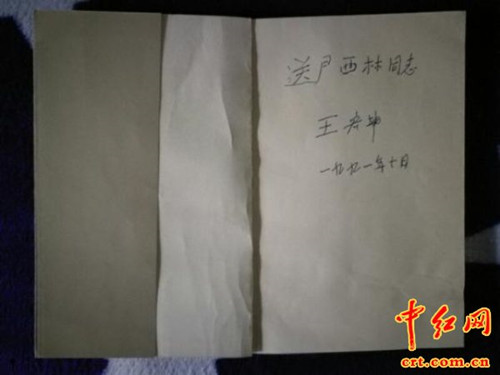 送尹西林同志
王宏坤
一九九一年十月
中红网
crt.com.cn